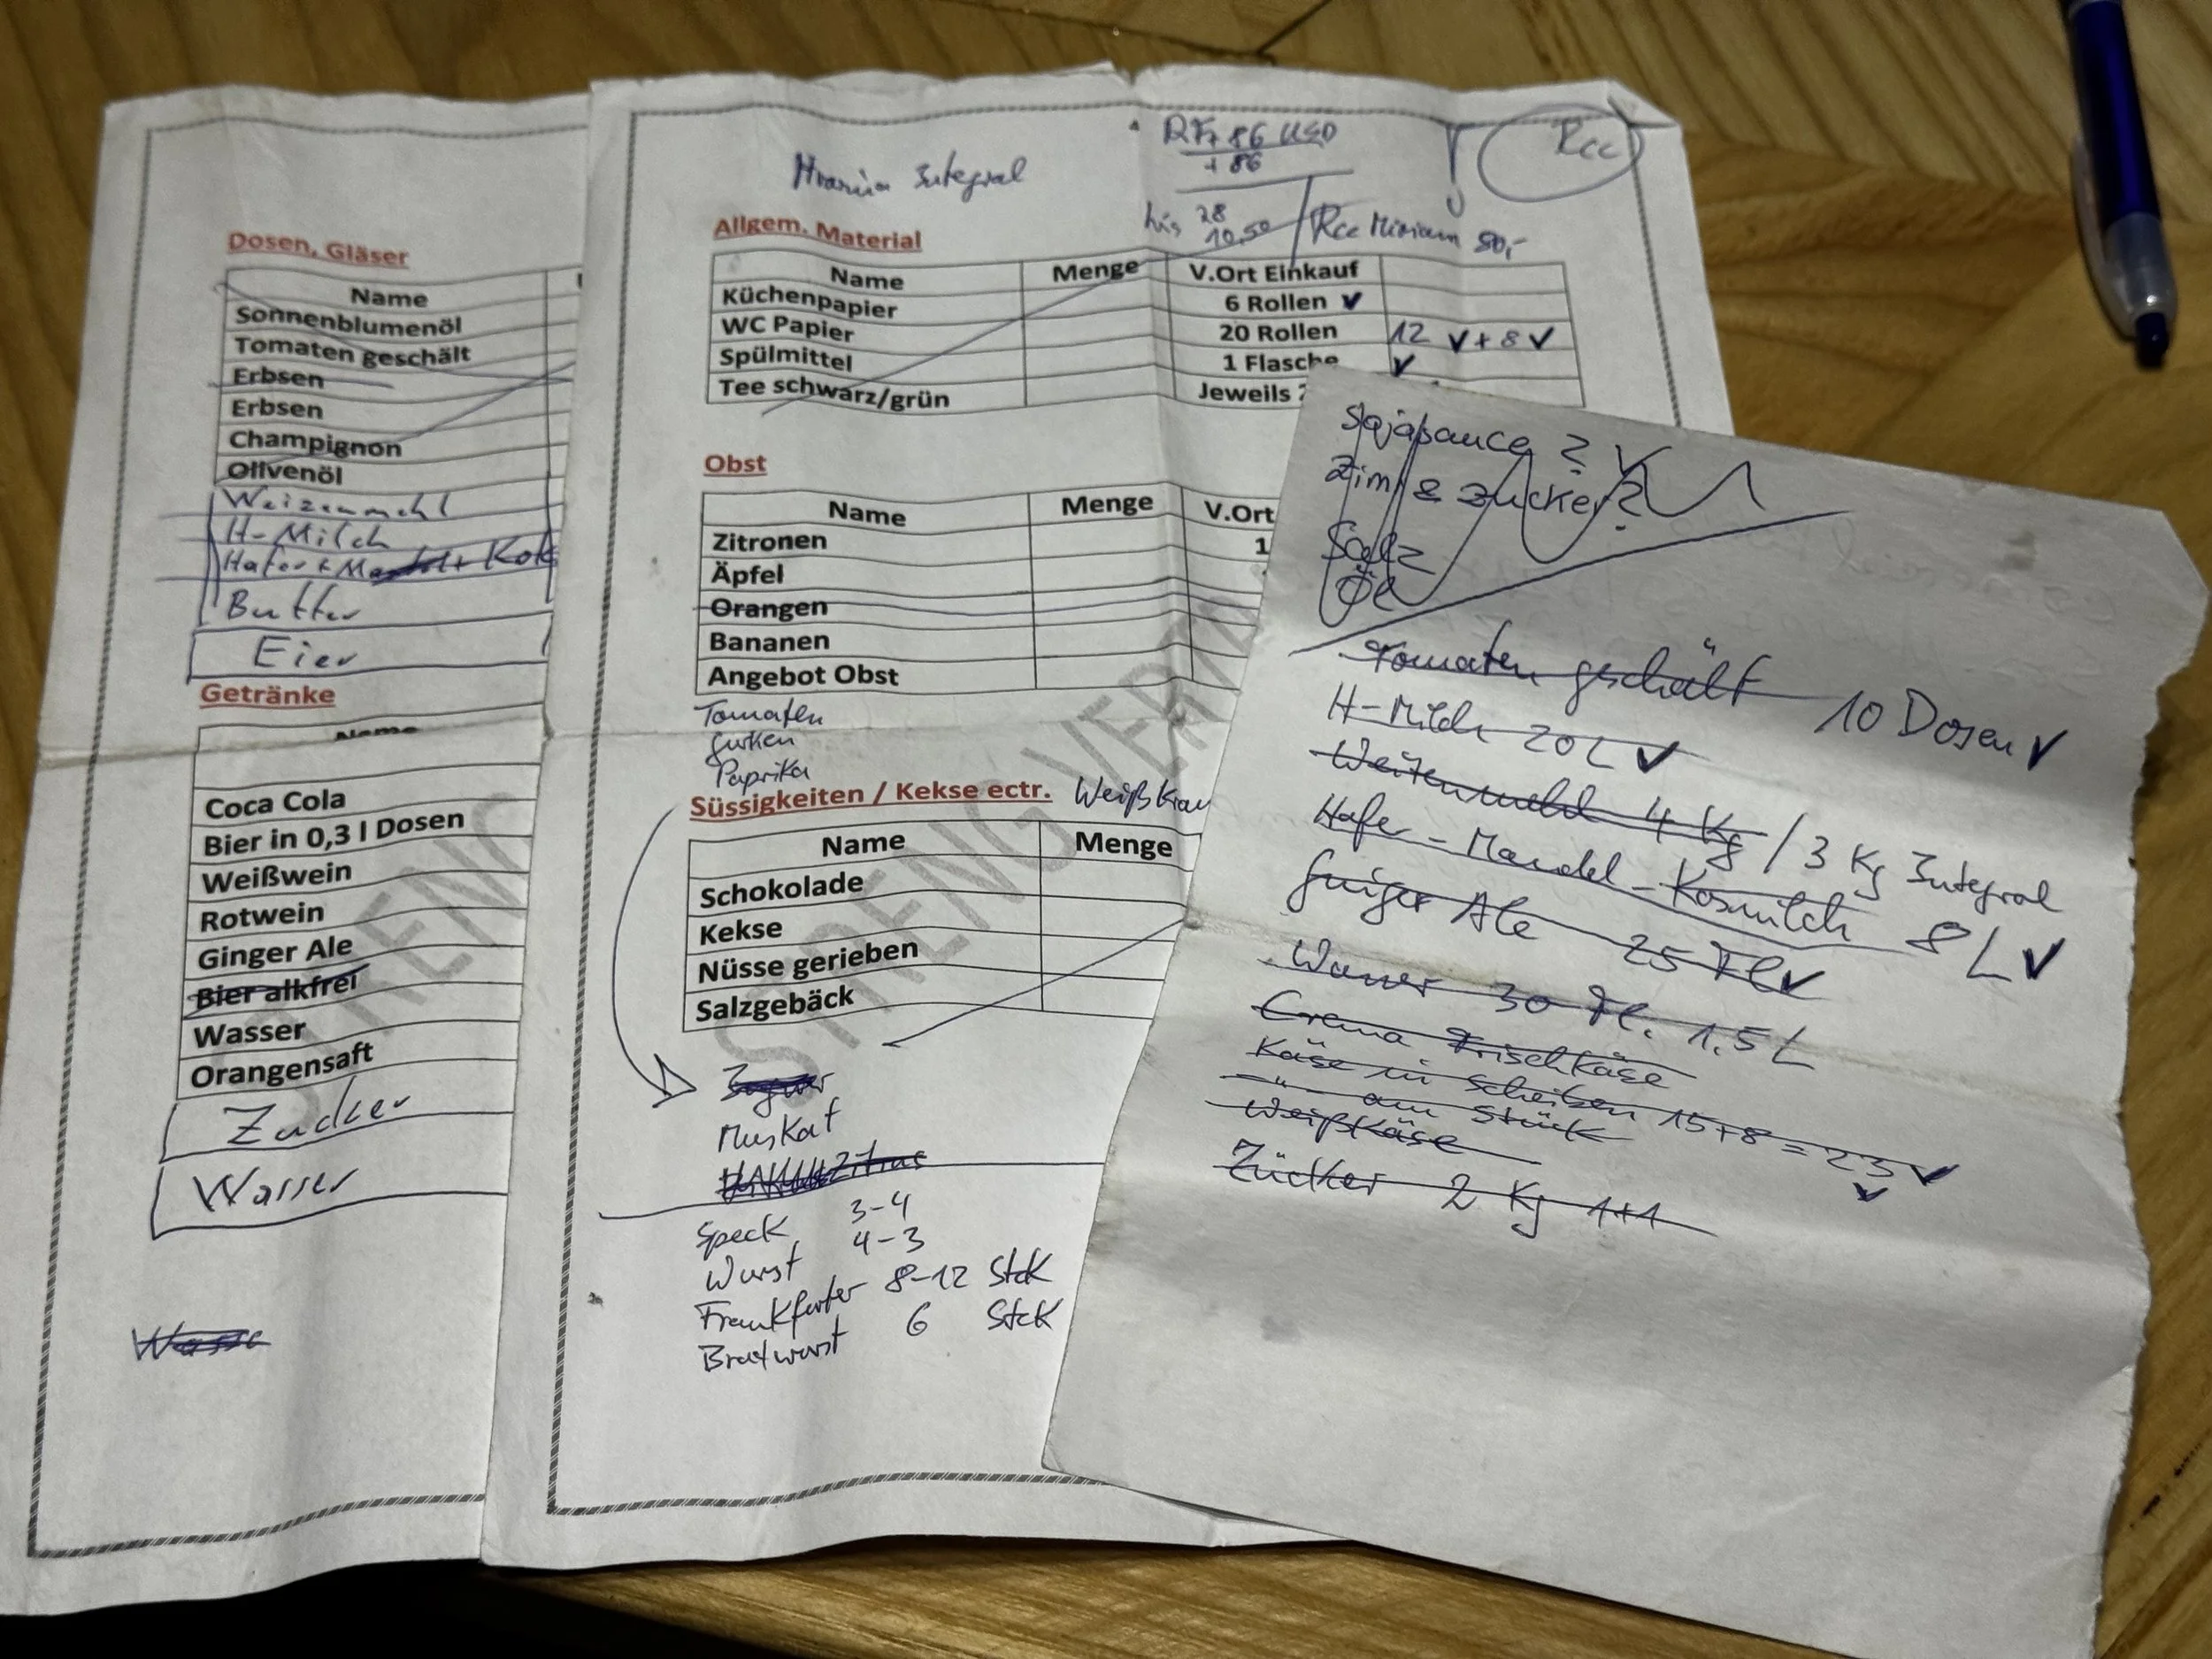 Dosen, Gläser
Name
Sonnenblumenöl
Tomaten geschält
Erbsen
Erbsen
Champignon
Olivenöl
Weizenmehl
H-Milch
Hafer +
Butter
Eier
Getränke
Name
Coca Cola
Bier in 0,3 l Dosen
Weißwein
Rotwein
Ginger Ale
Bier alkfrei
Wasser
Orangensaft
Zucker
Wasser
Integral
86 USD
+ 86
Rcc
bis 28
10,50
Rcc Miriam 50,-
Allgem. Material
Name Menge V.Ort Einkauf
Küchenpapier 6 Rollen ✓
WC Papier 20 Rollen 12 ✓ + 8 ✓
Spülmittel 1 Flasche ✓
Tee schwarz/grün Jeweils
Obst
Name Menge V.Ort
Zitronen 1
Äpfel
Orangen
Bananen
Angebot Obst
Tomaten
Gurken
Paprika
Süssigkeiten / Kekse ectr. Weißkrau
Name Menge
Schokolade
Kekse
Nüsse gerieben
Salzgebäck
STRENG VERTR
Muskat
Speck 3-4
Wurst 4-3
Frankfurter 8-12 Stck
Bratwurst 6 Stck
Sojasauce ?
Zimt & Zucker?
Salz
Öl
Tomaten geschält 10 Dosen ✓
H-Milch 20 L ✓
Weizenmehl 4 Kg / 3 Kg Integral
Hafer - Mandel - Kosmilch 8 L ✓
Ginger Ale 25 Fl ✓
Wasser 30 Fl. 1.5 L
Crema Frischkäse
Käse in Scheiben 15+8=23 ✓
-"- am Stück ✓
Weißkäse
Zucker 2 Kg 1+1